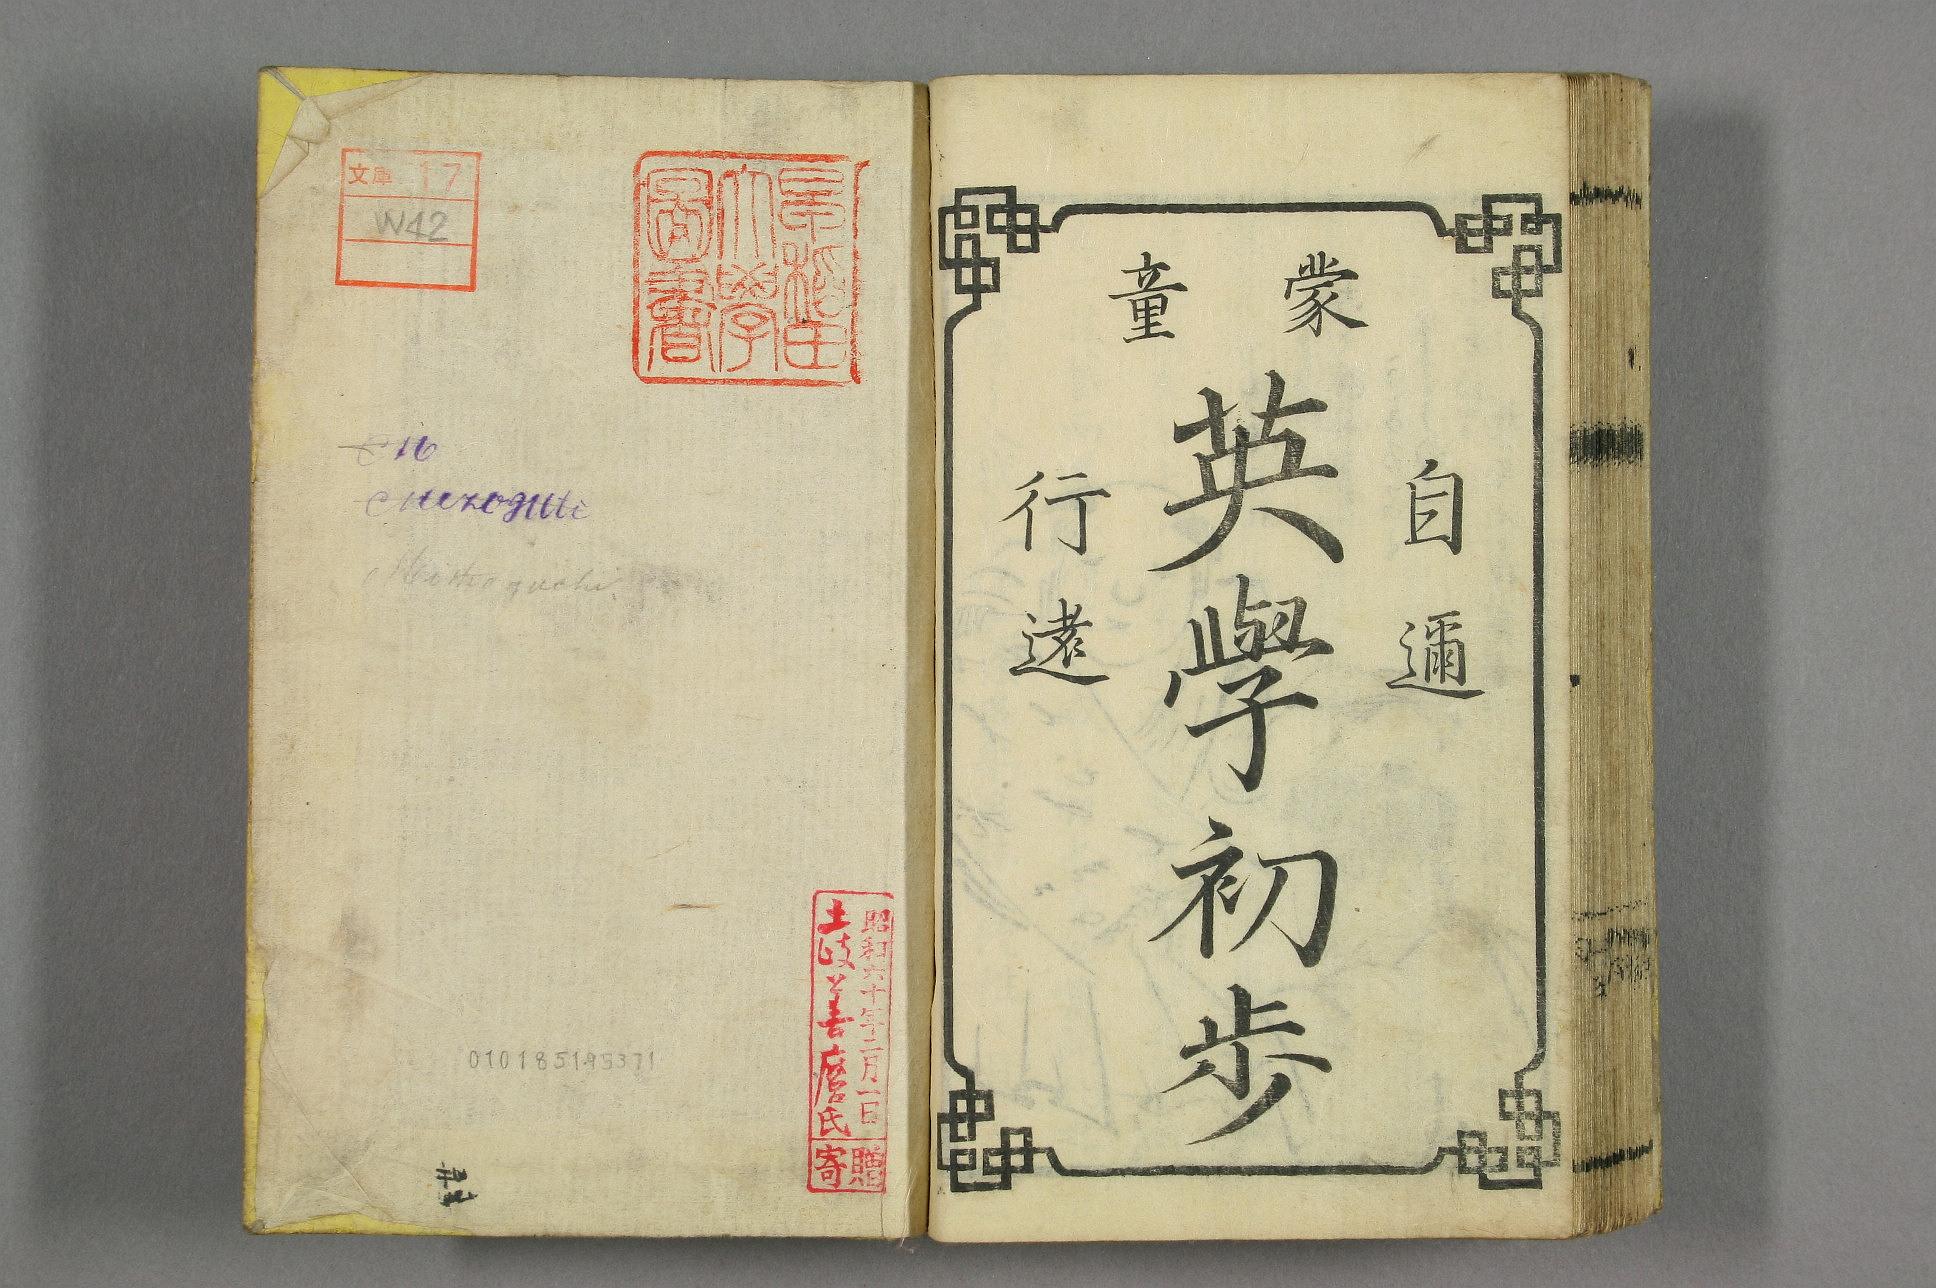 蒙童
自邇
英學初步
行遠
早稻田
大學
圖書
文庫 17
W42
E16
昭和六十年二月一日
土岐善麿氏
寄贈
010185195371